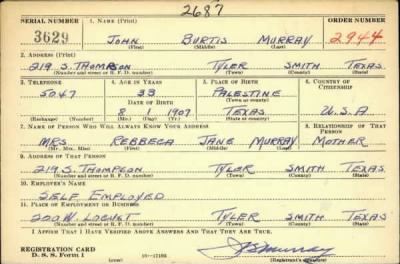 2687
SERIAL NUMBER 1. NAME (Print) ORDER NUMBER
3629 JOHN BURTIS MURRAY 2944
(First) (Middle) (Last)
2. ADDRESS (Print)
219 S. THOMPSON TYLER SMITH TEXAS
(Number and street or R. F. D. number) (Town) (County) (State)
3. TELEPHONE 4. AGE IN YEARS 5. PLACE OF BIRTH 6. COUNTRY OF CITIZENSHIP
5047 33 PALESTINE
DATE OF BIRTH (Town or county)
8 1 1907 TEXAS U.S.A
(Exchange) (Number) (Mo.) (Day) (Yr.) (State or country)
7. NAME OF PERSON WHO WILL ALWAYS KNOW YOUR ADDRESS 8. RELATIONSHIP OF THAT PERSON
MRS. REBBECA JANE MURRAY MOTHER
(Mr., Mrs., Miss) (First) (Middle) (Last)
9. ADDRESS OF THAT PERSON
219 S. THOMPSON TYLER SMITH TEXAS
(Number and street or R. F. D. number) (Town) (County) (State)
10. EMPLOYER'S NAME
SELF EMPLOYED
11. PLACE OF EMPLOYMENT OR BUSINESS
200 W. LOCUST TYLER SMITH TEXAS
(Number and street or R. F. D. number) (Town) (County) (State)
I AFFIRM THAT I HAVE VERIFIED ABOVE ANSWERS AND THAT THEY ARE TRUE.
REGISTRATION CARD
D. S. S. Form 1 JBMurray
(Registrant's signature)